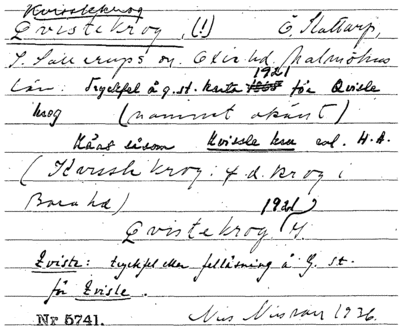 Kvisslekrog
Qvistekrog, (!) Ö. Slattarp,
S. Sallerups sn. Oxie hd. Malmöhus
län: Tryckfel å g. st. karta 1921 för Qvisle
krog (namnet okänt)
såsom Kvissle kro enl. H.A.
(Kvissle krog: f.d. krog i
Bara hd)
1921
Qvistekrog
Qviste: tryckfel eller felläsning å g. st.
för Qvisle.
Nr 5741. Nils Nilsson 1926.